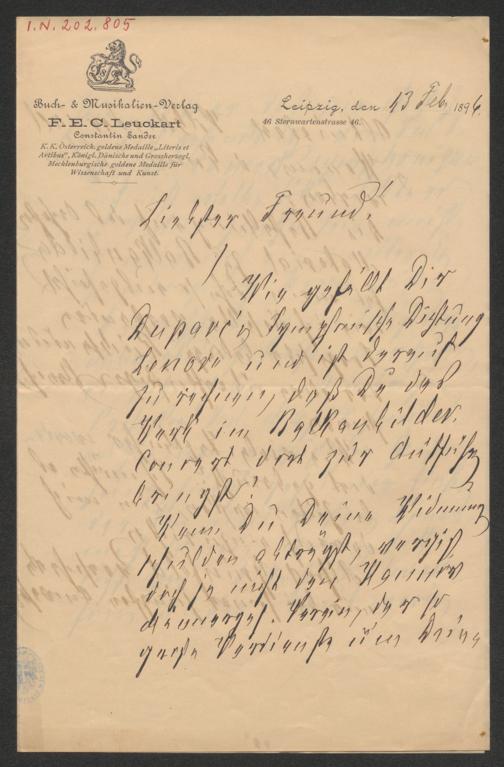 I.N. 202.805
Buch- & Musikalien-Verlag
F. E. C. Leuckart
Constantin Sander
K. K. Österreich. goldene Medaille „Literis et
Artibus“, Königl. Dänische und Grossherzogl.
Mecklenburgische goldene Medaille für
Wissenschaft und Kunst.
Leipzig, den 13 Feb. 1896.
46 Sternwartenstrasse 46.
Liebster Freund!
Wie gefällt Dir
Duparc's Symphonische Dichtung
Lenore und ist darauf
zu rechnen, daß Du das
Werk im
Concert dort zur Aufführg
bringst?
Wenn Du Deine Widmung
schulden abträgst, vergiß
doch ja nicht den
Verein, der so
große Verdienste um Deine